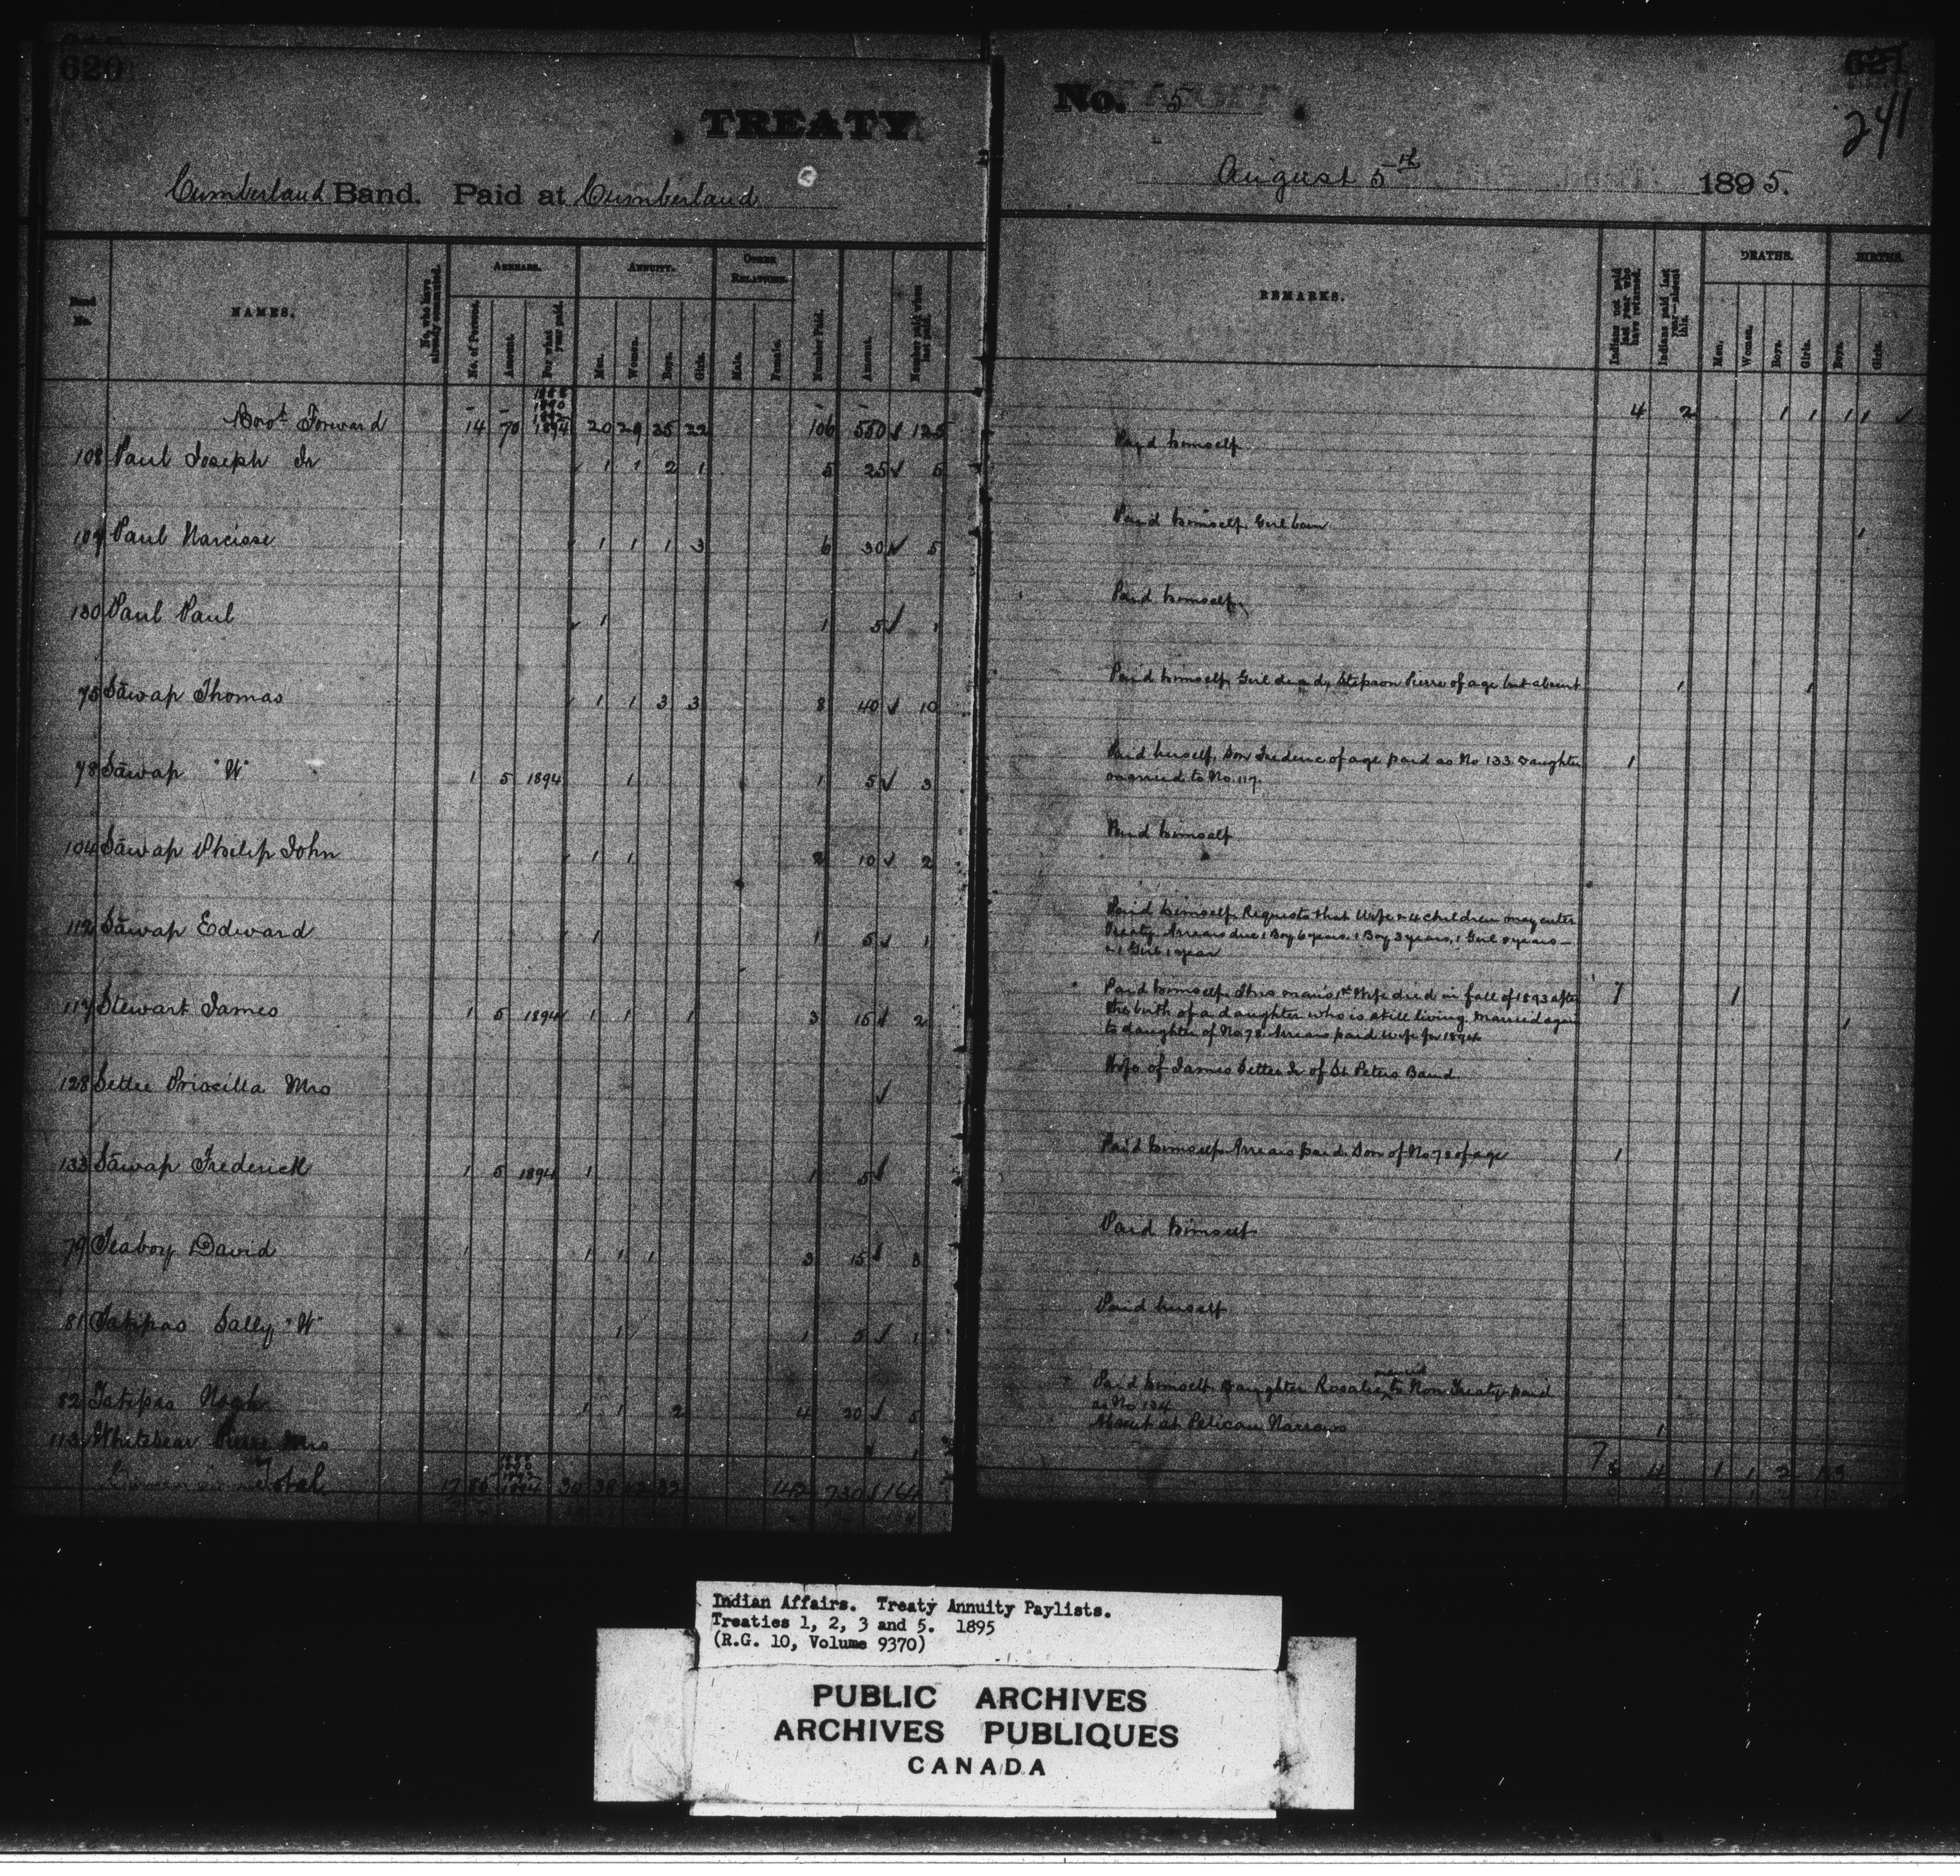 620
TREATY
Cumberland Band. Paid at Cumberland
No. 5
621
241
August 5th 1895.
NAMES.
No. who have already commuted.
ARREARS.
No. of Persons.
Amount.
For what year paid.
ANNUITY.
Men.
Women.
Boys.
Girls.
OTHER RELATIONS.
Male.
Female.
Number Paid.
Amount.
Number paid when last paid.
REMARKS.
Indians not paid last year who have returned.
Indians paid last year—absent this.
DEATHS.
Men.
Women.
Boys.
Girls.
BIRTHS.
Boys.
Girls.
Brot Forward 14 70 1894 20 29 35 22 106 550 ✓ 125 4 2 1 1 1 1 ✓
108 Paul Joseph Jr 1 1 2 1 5 25 ✓ 5 Paid himself
109 Paul Narcisse 1 1 1 3 6 30 ✓ 5 Paid himself, Girl born 1
130 Paul Paul ✓ 1 1 5 ✓ 1 Paid himself
75 Sāwap Thomas 1 1 3 3 8 40 ✓ 10 Paid himself, Girl dead, Stepson Pierre of age but absent 1 1
78 Sāwap "W" 1 5 1894 1 1 5 ✓ 3 Paid herself, Son Frederic of age paid as No 133 Daughter 1
married to No. 117.
104 Sāwap Philip John 1 1 2 10 ✓ 2 Paid himself
112 Sāwap Edward 1 1 5 ✓ 1 Paid himself Requests that Wife & 4 children may enter
Treaty Arrears due 1 Boy 6 years. 1 Boy 3 years, 1 Girl 8 years—
1 Girl 1 year
117 Stewart James 1 5 1894 1 1 1 3 15 ✓ 2 Paid himself. This man's 1st Wife died in fall of 1893 after 1 1
the birth of a daughter who is still living. Married again 1
to daughter of No 78. Arrears paid wife for 1894
128 Settee Priscilla Mrs ✓ Wife of James Settee Jr of St Peters Band
133 Sāwap Frederick 1 5 1894 1 1 5 ✓ Paid himself Arrears paid. Son of No 78 of age 1
79 Teaboy David 1 1 1 3 15 ✓ 3 Paid himself
81 Tatipas Sally "W" 1 1 5 ✓ 1 Paid herself
82 Tatipas Noah 1 1 2 4 20 ✓ 5 Paid himself. Daughter Rosalie married to Non Treaty paid
as No 134
113 Whitebear Pierre Mrs ✓ 1 Absent at Pelican Narrows 1
Total 17 85 1894 30 38 32 142 730 ✓ 164 7 4 1 1 2 1 3
Indian Affairs. Treaty Annuity Paylists.
Treaties 1, 2, 3 and 5. 1895
(R.G. 10, Volume 9370)
PUBLIC ARCHIVES
ARCHIVES PUBLIQUES
CANADA